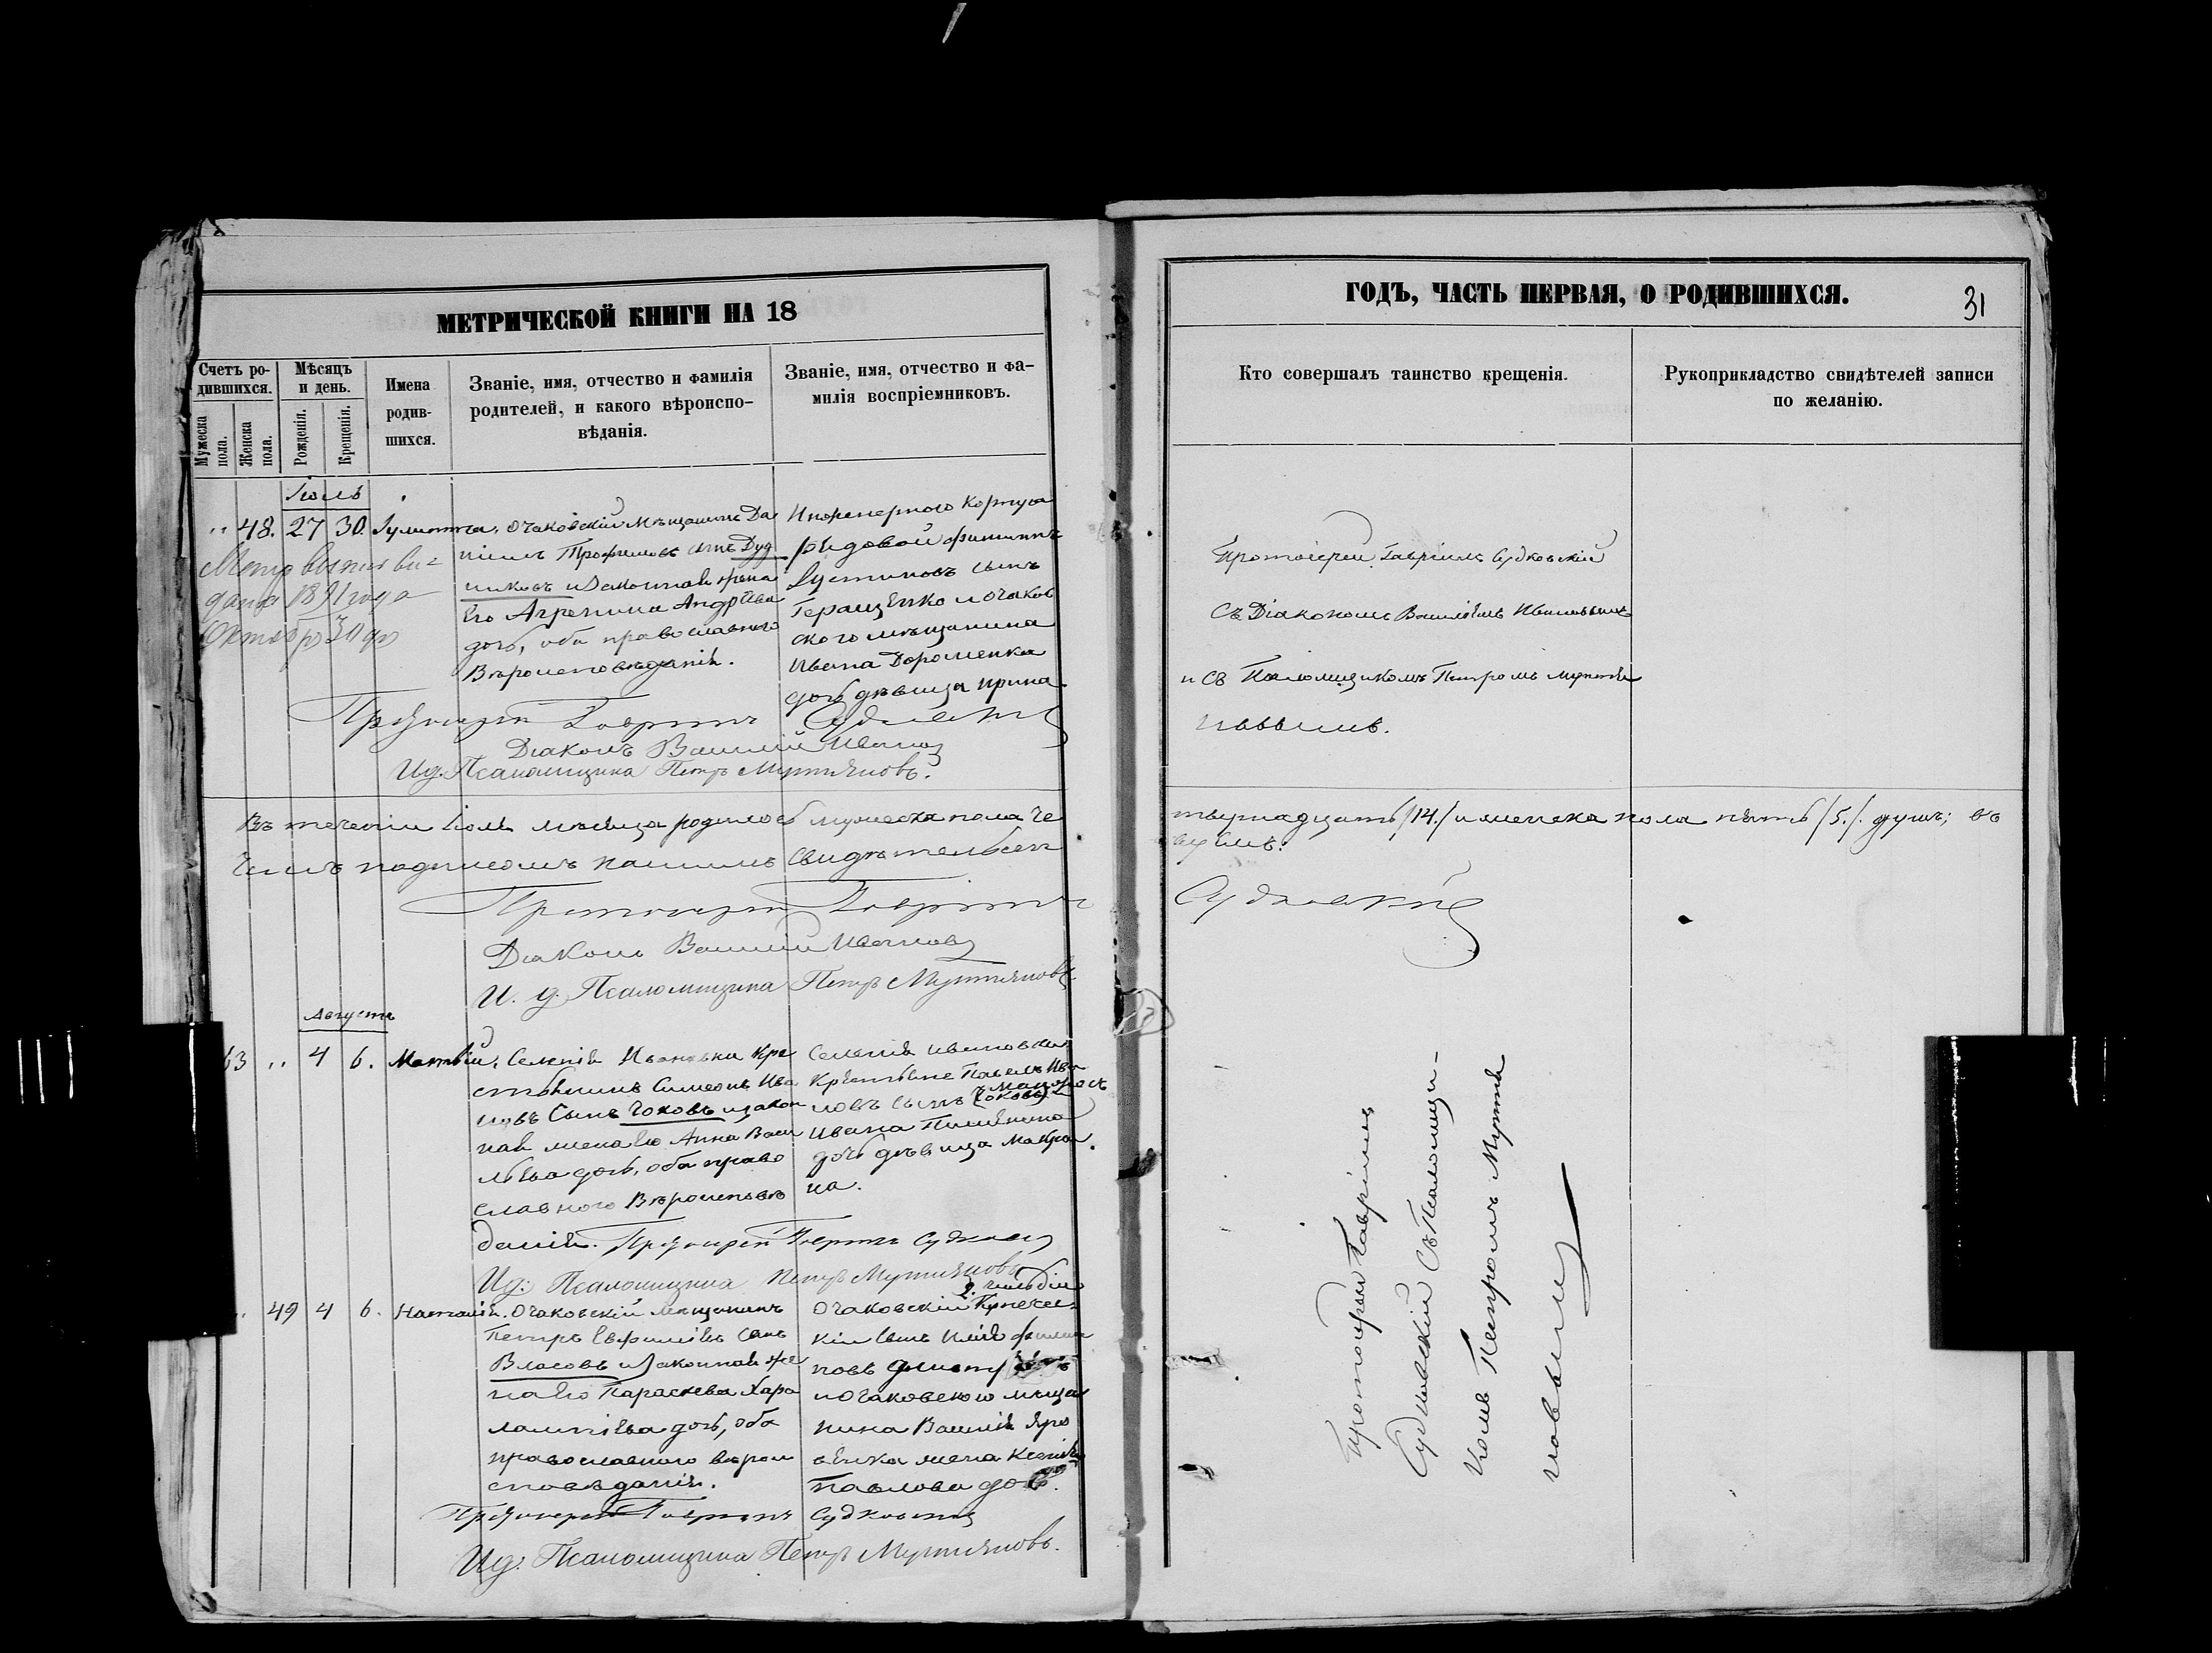 МЕТРИЧЕСКОЙ КНИГИ НА 18
Счетъ ро-
дившихся.
Мужеска
пола.
Женска
пола.
Мѣсяцъ
и день.
Рожденія.
Крещенія.
Имена
родив-
шихся.
Званіе, имя, отчество и фамилія
родителей, и какого вѣроиспо-
вѣданія.
Званіе, имя, отчество и фа-
милія воспріемниковъ.
Іюль
48. 27 30. Іулитта.
Очаковскій Мѣщанинъ Да
ніилъ Трофимовъ сынъ Дуд
никовъ и законная жена
Его Агрепина Андрѣева
дочь, оба православнаго
Вѣроисповѣданія.
Инженернаго Корпуса
рядовой Филиппъ
Іустиновъ сынъ
Геращенко и очаков
скаго мѣщанина
Ивана Дороменка
дочь дѣвица Ирина.
Метр выпис вы=
дана 1891 года
Октября 30 дн
Протоіерей Гавріилъ Судковскій
Діаконъ Василій Ивановъ
И.д. Псаломщика Петръ Мутьяновъ.
Въ теченіи Іюля мѣсяца родилось мужеска пола че
чемъ подписомъ нашимъ свидѣтельсвт
Протоіерей Гавріилъ
Діаконъ Василій Ивановъ
И. д. Псаломщика Петръ Мутьяновъ
Августъ
63 4 6. Матвій.
Селенія Ивановки Кре
стьянинъ Симеонъ Ива
новъ Сынъ Чоковъ и закон
ная жена Его Анна Васи
льева дочь, оба право
славнаго Вѣроисповѣ
данія.
Селенія Ивановки
Крестьяне Павелъ Ива
новъ Сынъ Чоковъ
Ивана
дочь дѣвица Макри
на.
Протоіерей Гавріилъ Судковскій
И.д: Псаломщика Петръ Мутьяновъ
49 4 6. Наталія.
Очаковскій мѣщанинъ
Петръ Евфиміевъ Сынъ
Власовъ и законная же
на Его Параскева Хара
лампіева дочь, оба
православнаго вѣрои
сповѣданія.
2. гильдіи
Очаковскій Купечес=
кій Сынъ Илія Филип
повъ
и Очаковскаго мѣща
нина Василія Яро
вѣнка жена Ксенія
Павлова дочь.
Протоіерей Гавріилъ Судковскій
И.д: Псаломщика Петръ Мутьяновъ.
ГОДЪ, ЧАСТЬ ПЕРВАЯ, О РОДИВШИХСЯ.
31
Кто совершалъ таинство крещенія.
Рукоприкладство свидѣтелей записи
по желанію.
Протоіерей Гавріилъ Судковскій
Съ Діакономъ Василіемъ Ивановымъ
и съ Псаломщикомъ Петромъ Мутья
новымъ.
тырнадцать /14./ и женска пола пять /5./ душъ; въ
Судковскій
Протоіерей Гавріилъ
Судковскій съ Псаломщи-
комъ Петромъ Мутья
новымъ